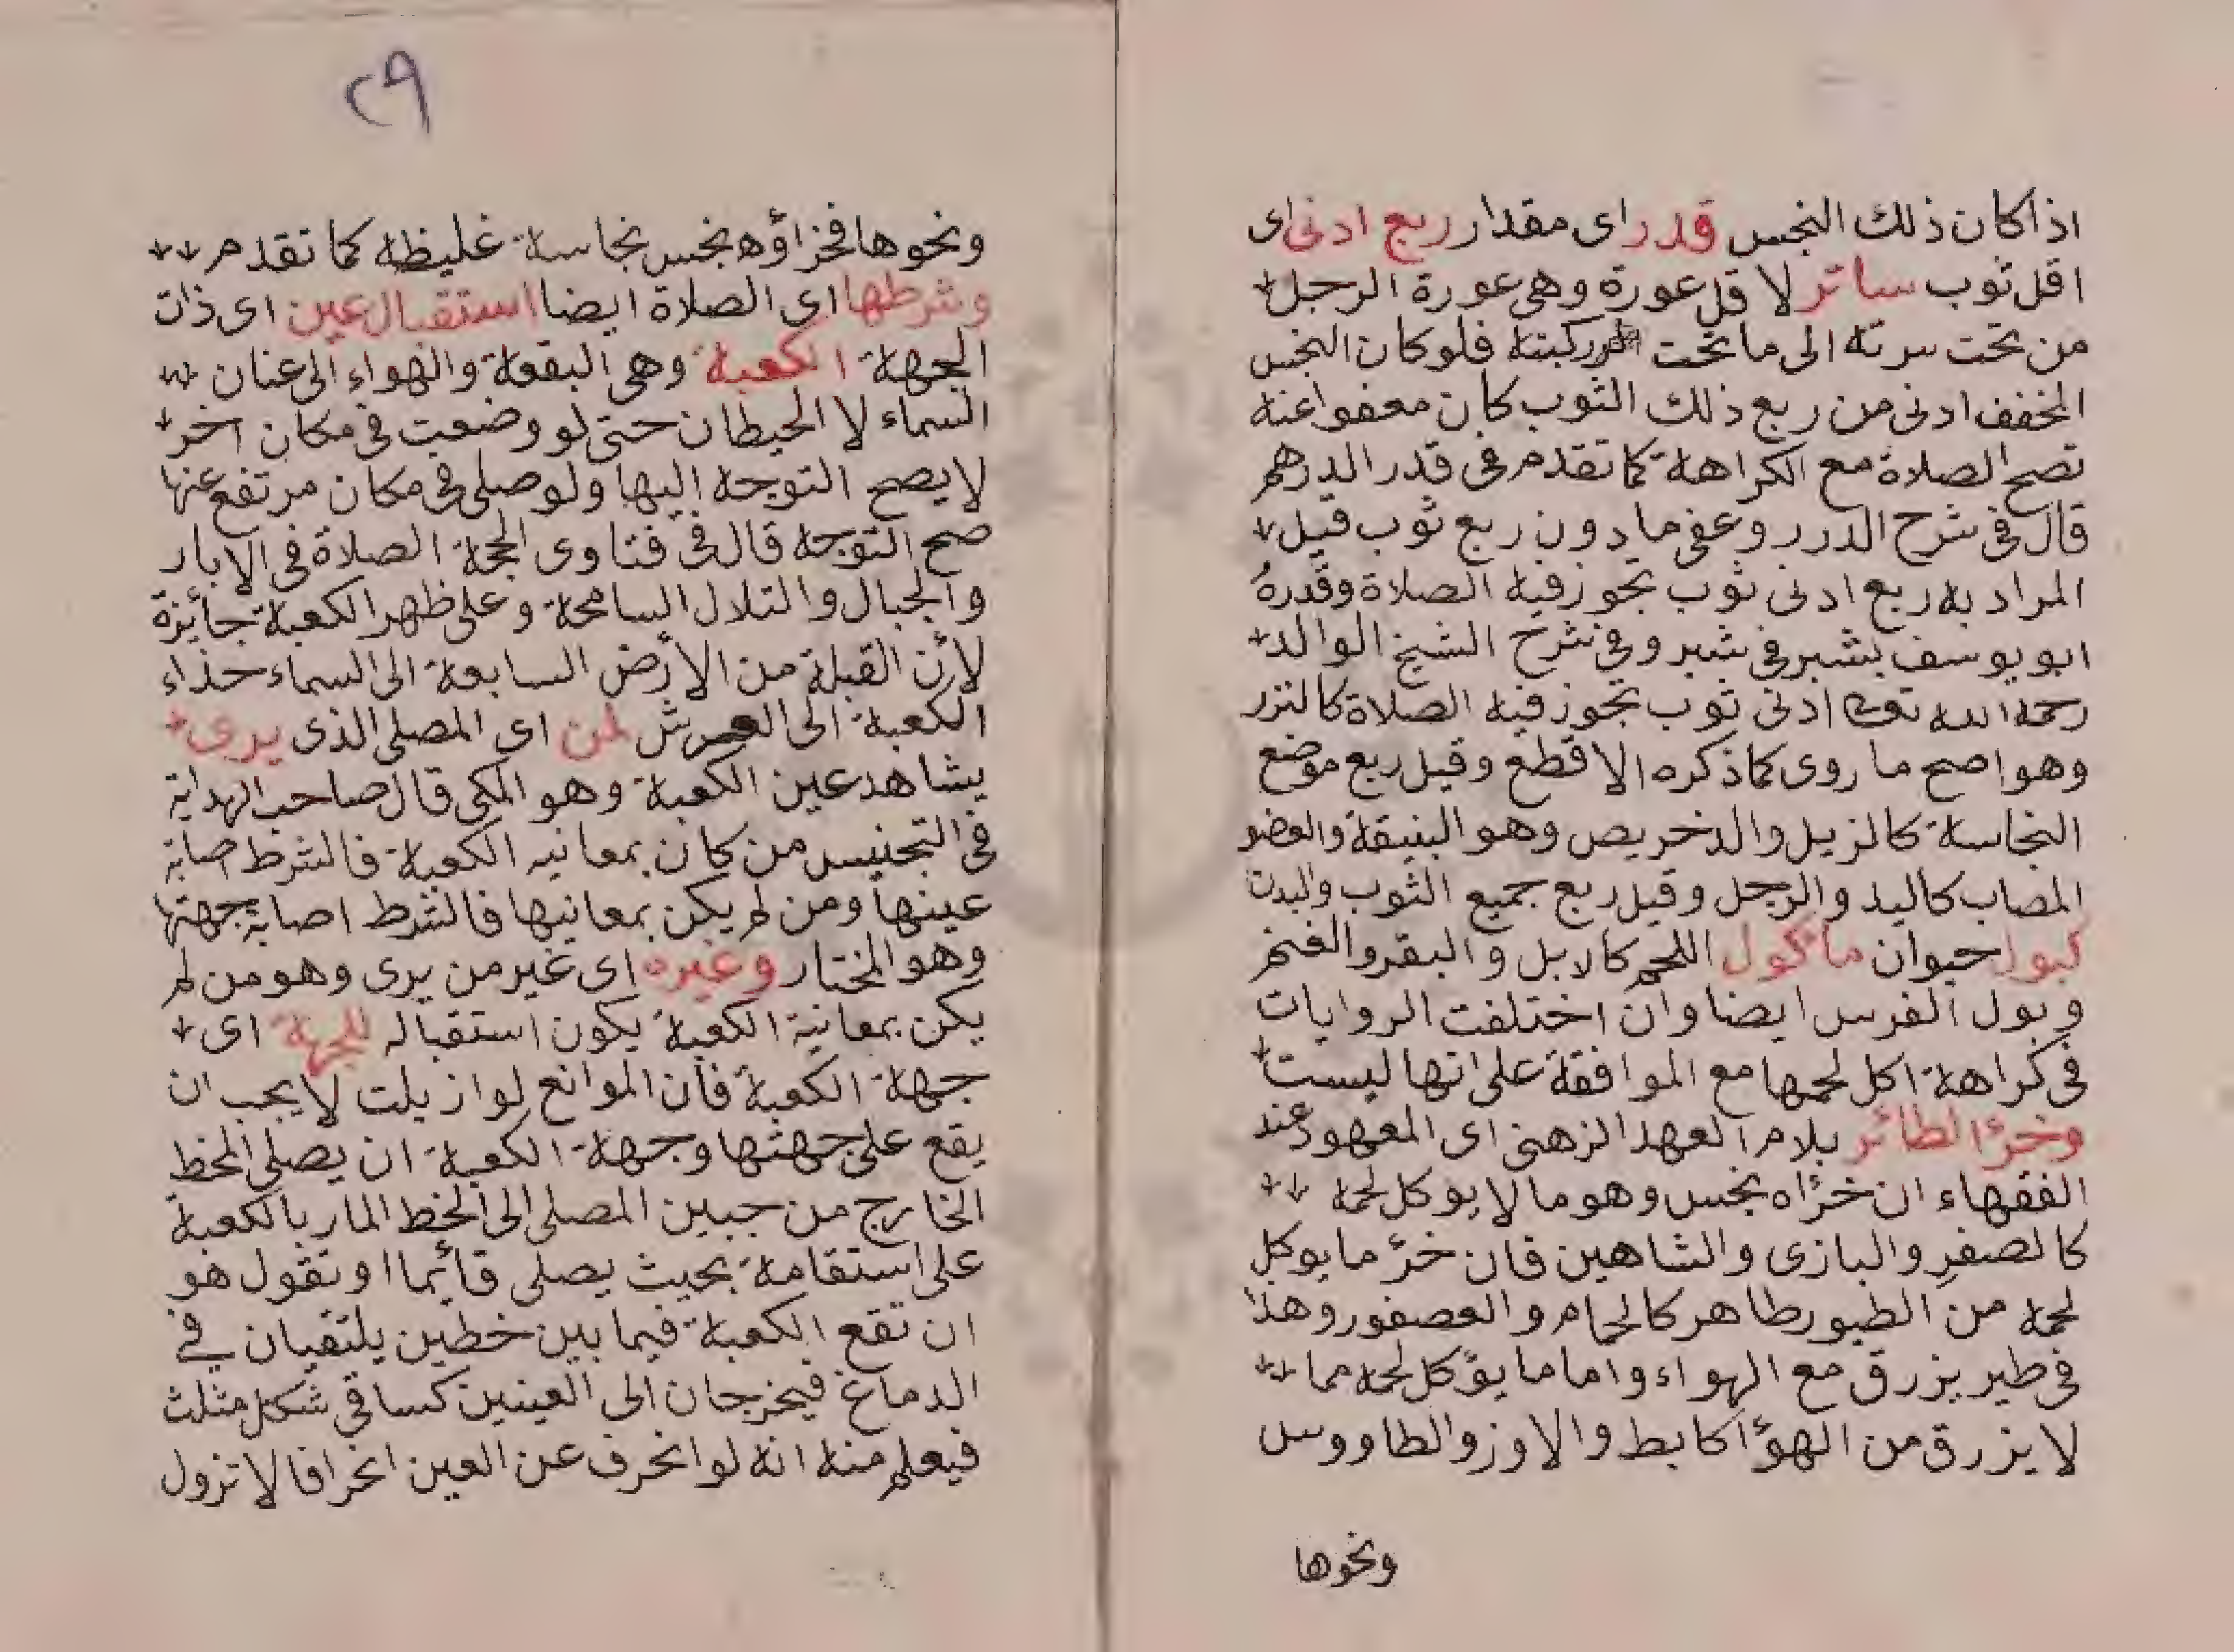 اذا كان ذلك النجس قدر اى مقدار ربع ادنى اى
اقل ثوب ساتر لا قل عورة وهى عورة الرجل
من تحت سرته الى ما تحت ركبته فلو كان النجس
المخفف ادنى من ربع ذلك الثوب كان معفوا عنه
تصح الصلاة مع الكراهة كما تقدم فى قدر الدرهم
قال فى شرح الدرر وعفى ما دون ربع ثوب قيل
المراد به ربع ادنى ثوب تجوز فيه الصلاة وقدره
ابو يوسف بشبر فى شبر وفى شرح الشيخ الوالد
رحمه الله تعالى ادنى ثوب تجوز فيه الصلاة كالنزر
وهو اصح ما روى كما ذكره الاقطع وقيل ربع موضع
النجاسة كالزيل والدخريص وهو البنيقة والعضو
المصاب كاليد والرجل وقيل ربع جميع الثوب والبدن
كبول حيوان ماكول اللحم كالابل والبقر والغنم
وبول الفرس ايضا وان اختلفت الروايات
فى كراهة اكل لحمها مع الموافقة على انها ليست
وخرؤ الطائر بلام العهد الزهنى اى المعهود عند
الفقهاء ان خرؤاه نجس وهو ما لا يوكل لحمه
كالصفر والبازى والشاهين فان خرؤ ما يوكل
لحمه من الطيور طاهر كالحمام والعصفور وهذا
فى طير يزرق مع الهواء واما ما يؤكل لحمه مما
لا يزرق من الهوؤا كابط والاوز والطاووس
ونحوها
٢٩
ونحوها فخزاؤه نجس نجاسة غليظه كما تقدم
وشرطها اى الصلاة ايضا استقبال عين اى ذات
الجهة الكعبة وهى البقعة والهواء الى عنان
السماء لا الحيطان حتى لو وضعت فى مكان اخر
لا يصح التوجه اليها ولو صلى فى مكان مرتفع عنها
صح التوجه قال فى فتاوى الحجة الصلاة فى الابار
والجبال والتلال السامحة وعلى ظهر الكعبة جائزة
لأن القبلة من الأرض السابعة الى السماء حذاء
الكعبة الى العرش لمن اى المصلى الذى يرى
يشاهد عين الكعبة وهو المكى قال صاحب الهداية
فى التجنيس من كان بمعانيه الكعبة فالشرط اصابة
عينها ومن لم يكن بمعانيها فالشرط اصابة جهتها
وهو المختار وغيره اى غير من يرى وهو من لم
يكن بمعانية الكعبة يكون استقباله للجهة اى
جهة الكعبة فأن الموانع لو ازيلت لا يجب ان
يقع على جهتها وجهة الكعبة ان يصلى الخط
الخارج من جبين المصلى الى الخط المار بالكعبة
على استقامة بحيث يصلى قائما او تقول هو
ان تقع الكعبة فيما بين خطين يلتقيان فى
الدماغ فيخرجان الى العينين كساقى شكل مثلث
فيعلم منه انه لو انحرف عن العين انحرافا لا تزول